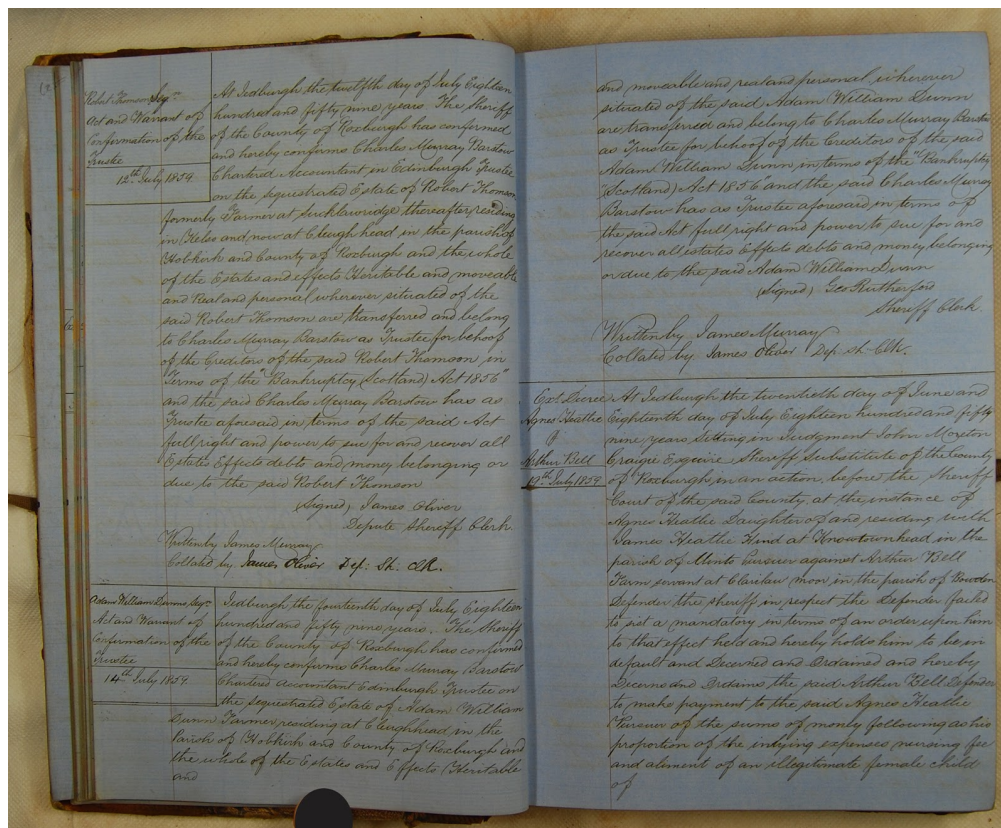 Robert Thomson Seqn
Act and Warrant of
Confirmation of the
Trustee
12th July 1859
At Jedburgh the twelfth day of July Eighteen
hundred and fifty nine years. The Sheriff
of the County of Roxburgh has confirmed
and hereby confirms Charles Murray Barstow
Chartered Accountant in Edinburgh Trustee
on the sequestrated Estate of Robert Thomson
formerly Farmer at thereafter residing
in Kelso and now at Cleugh head in the parish of
Hobkirk and County of Roxburgh and the whole
of the Estates and effects Heritable and moveable
and Real and personal wherever situated of the
said Robert Thomson are transferred and belong
to Charles Murray Barstow as Trustee for behoof
of the Creditors of the said Robert Thomson in
Terms of the "Bankruptcy (Scotland) Act 1856"
and the said Charles Murray Barstow has as
Trustee aforesaid in terms of the said Act
full right and power to sue for and recover all
Estates Effects debts and money belonging or
due to the said Robert Thomson
(Signed) James Oliver
Depute Sheriff Clerk
Written by James Murray
Collated by James Oliver Dep: Sh. Clk.
Adam William Dunns Seqn
Act and Warrant of
Confirmation of the
Trustee
14th July 1859.
Jedburgh, the fourteenth day of July Eighteen
hundred and fifty nine years. The Sheriff
of the County of Roxburgh has confirmed
and hereby confirms Charles Murray Barstow
Chartered Accountant Edinburgh Trustee on
the sequestrated Estate of Adam William
Dunn Farmer residing at Cleughhead in the
Parish of Hobkirk and County of Roxburgh and
the whole of the Estates and Effects Heritable
and
and moveable and real and personal wherever
situated of the said Adam William Dunn
are transferred and belong to Charles Murray Barstow
as Trustee for behoof of the Creditors of the said
Adam William Dunn in terms of the "Bankruptcy
(Scotland) Act 1856" and the said Charles Murray
Barstow has as Trustee aforesaid in terms of
the said Act full right and power to sue for and
recover all estates Effects debts and money belonging
or due to the said Adam William Dunn
(Signed) Geo Rutherford
Sheriff Clerk.
Written by James Murray
Collated by James Oliver Dep. Sh. Clk.
Ext. Decree
Agnes Heatlie
Arthur Bell
19th July 1859
At Jedburgh the twentieth day of June and
Eighteenth day of July Eighteen hundred and fifty
nine years Sitting in Judgment John Moreton
Craigie Esquire Sheriff Substitute of the County
of Roxburgh in an action before the Sheriff
Court of the said County at the instance of
Agnes Heatlie Daughter of and residing with
James Heatlie Hind at Knowtownhead in the
parish of Minto Pursuer against Arthur Bell
Farm servant at Clarilaw moor in the parish of Bowden
Defender the sheriff in respect the Defender failed
to sist a mandatory in terms of an order upon him
to that effect held and hereby holds him to be in
default and Decerned and Ordained and hereby
Decerns and Ordains the said Arthur Bell Defender
to make payment to the said Agnes Heatlie
Pursuer of the sums of money following as his
proportion of the inlying expenses nursing fee
and aliment of an illegitimate female child
of